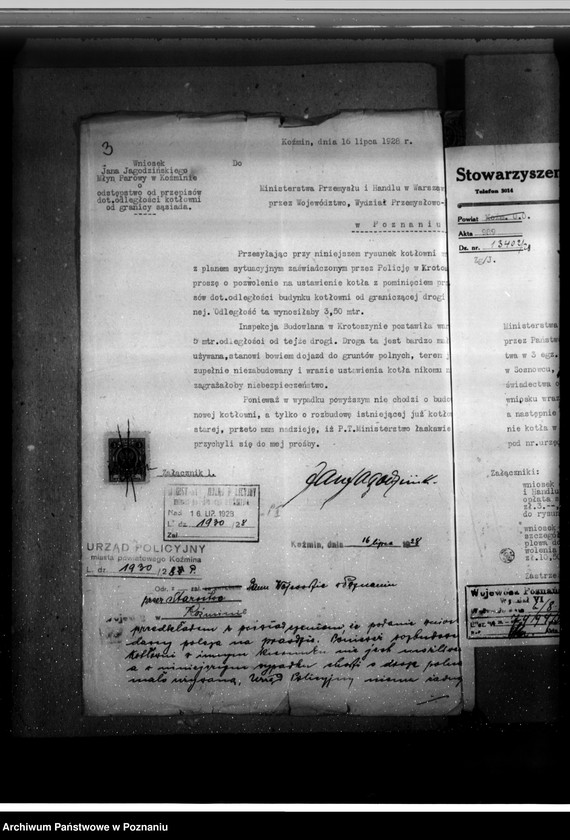 3
Koźmin, dnia 16 lipca 1928 r.
Wniosek
Jana Jagodzińskiego
Młyn Parowy w Koźminie
o
odstępstwo od przepisów
dot.odległości kotłowni
od granicy sąsiada.
Do
Ministerstwa Przemysłu i Handlu w Warszaw
przez Województwo, Wydział Przemysłowo-
w Poznaniu
Przesyłając przy niniejszem rysunek kotłowni w
z planem sytuacyjnym zaświadczonym przez Policję w Krotos
proszę o pozwolenie na ustawienie kotła z pominięciem prz
sów dot.odległości budynku kotłowni od graniczącej drogi
nej. Odległość ta wynosiłaby 3,50 mtr.
Inspekcja Budowlana w Krotoszynie postawiła war
5 mtr.odległości od tejże drogi. Droga ta jest bardzo mał
używana,stanowi bowiem dojazd do gruntów polnych, teren j
zupełnie niezabudowany i wrazie ustawienia kotła nikomu n
zagrażałoby niebezpieczeństwo.
Ponieważ w wypadku powyższym nie chodzi o budo
nowej kotłowni, a tylko o rozbudowę istniejącej już kotło
starej, przeto mam nadzieję, iż P.T.Ministerstwo łaskawie
przychyli się do mej prośby.
Załącznik 1.
Jan Jagodziński
Nad. 16. LIP. 1928
L. dz. 1930/28
Zał.
URZĄD POLICYJNY
miasta powiatowego Koźmina
L. dz. 1930/28 P.
Koźmin, dnia 16 lipca 1928
Odr. z zał.
Panu Wojewodzie w Poznaniu
przez Starostwo
w Koźminie
przedkładam z poświadczeniem, że podanie
polega na prawdzie.
kotłowni w innym kierunku nie jest możliwa
a w niniejszym wypadku chodzi o drogę polną
mało używaną. Urząd Policyjny niema żadny
Stowarzyszen
Telefon 3014
Powiat Koźm. O.D.
Akta
Dz. nr. 13402/28
Ministerstwa
przez Państw
twa w 3 egz.
w Sosnowcu,
świadectwa o
wniosku wraz
a następnie
nie kotła w
pod nr.urzęd
Załączniki:
wniosek
i Handlu
opłata s
zł.3.--,
do rysun
wniosek
szczegół
płowa do
wolenia
zł.10,50
Zastrze
Wojewoda Poznań
Wydział VI